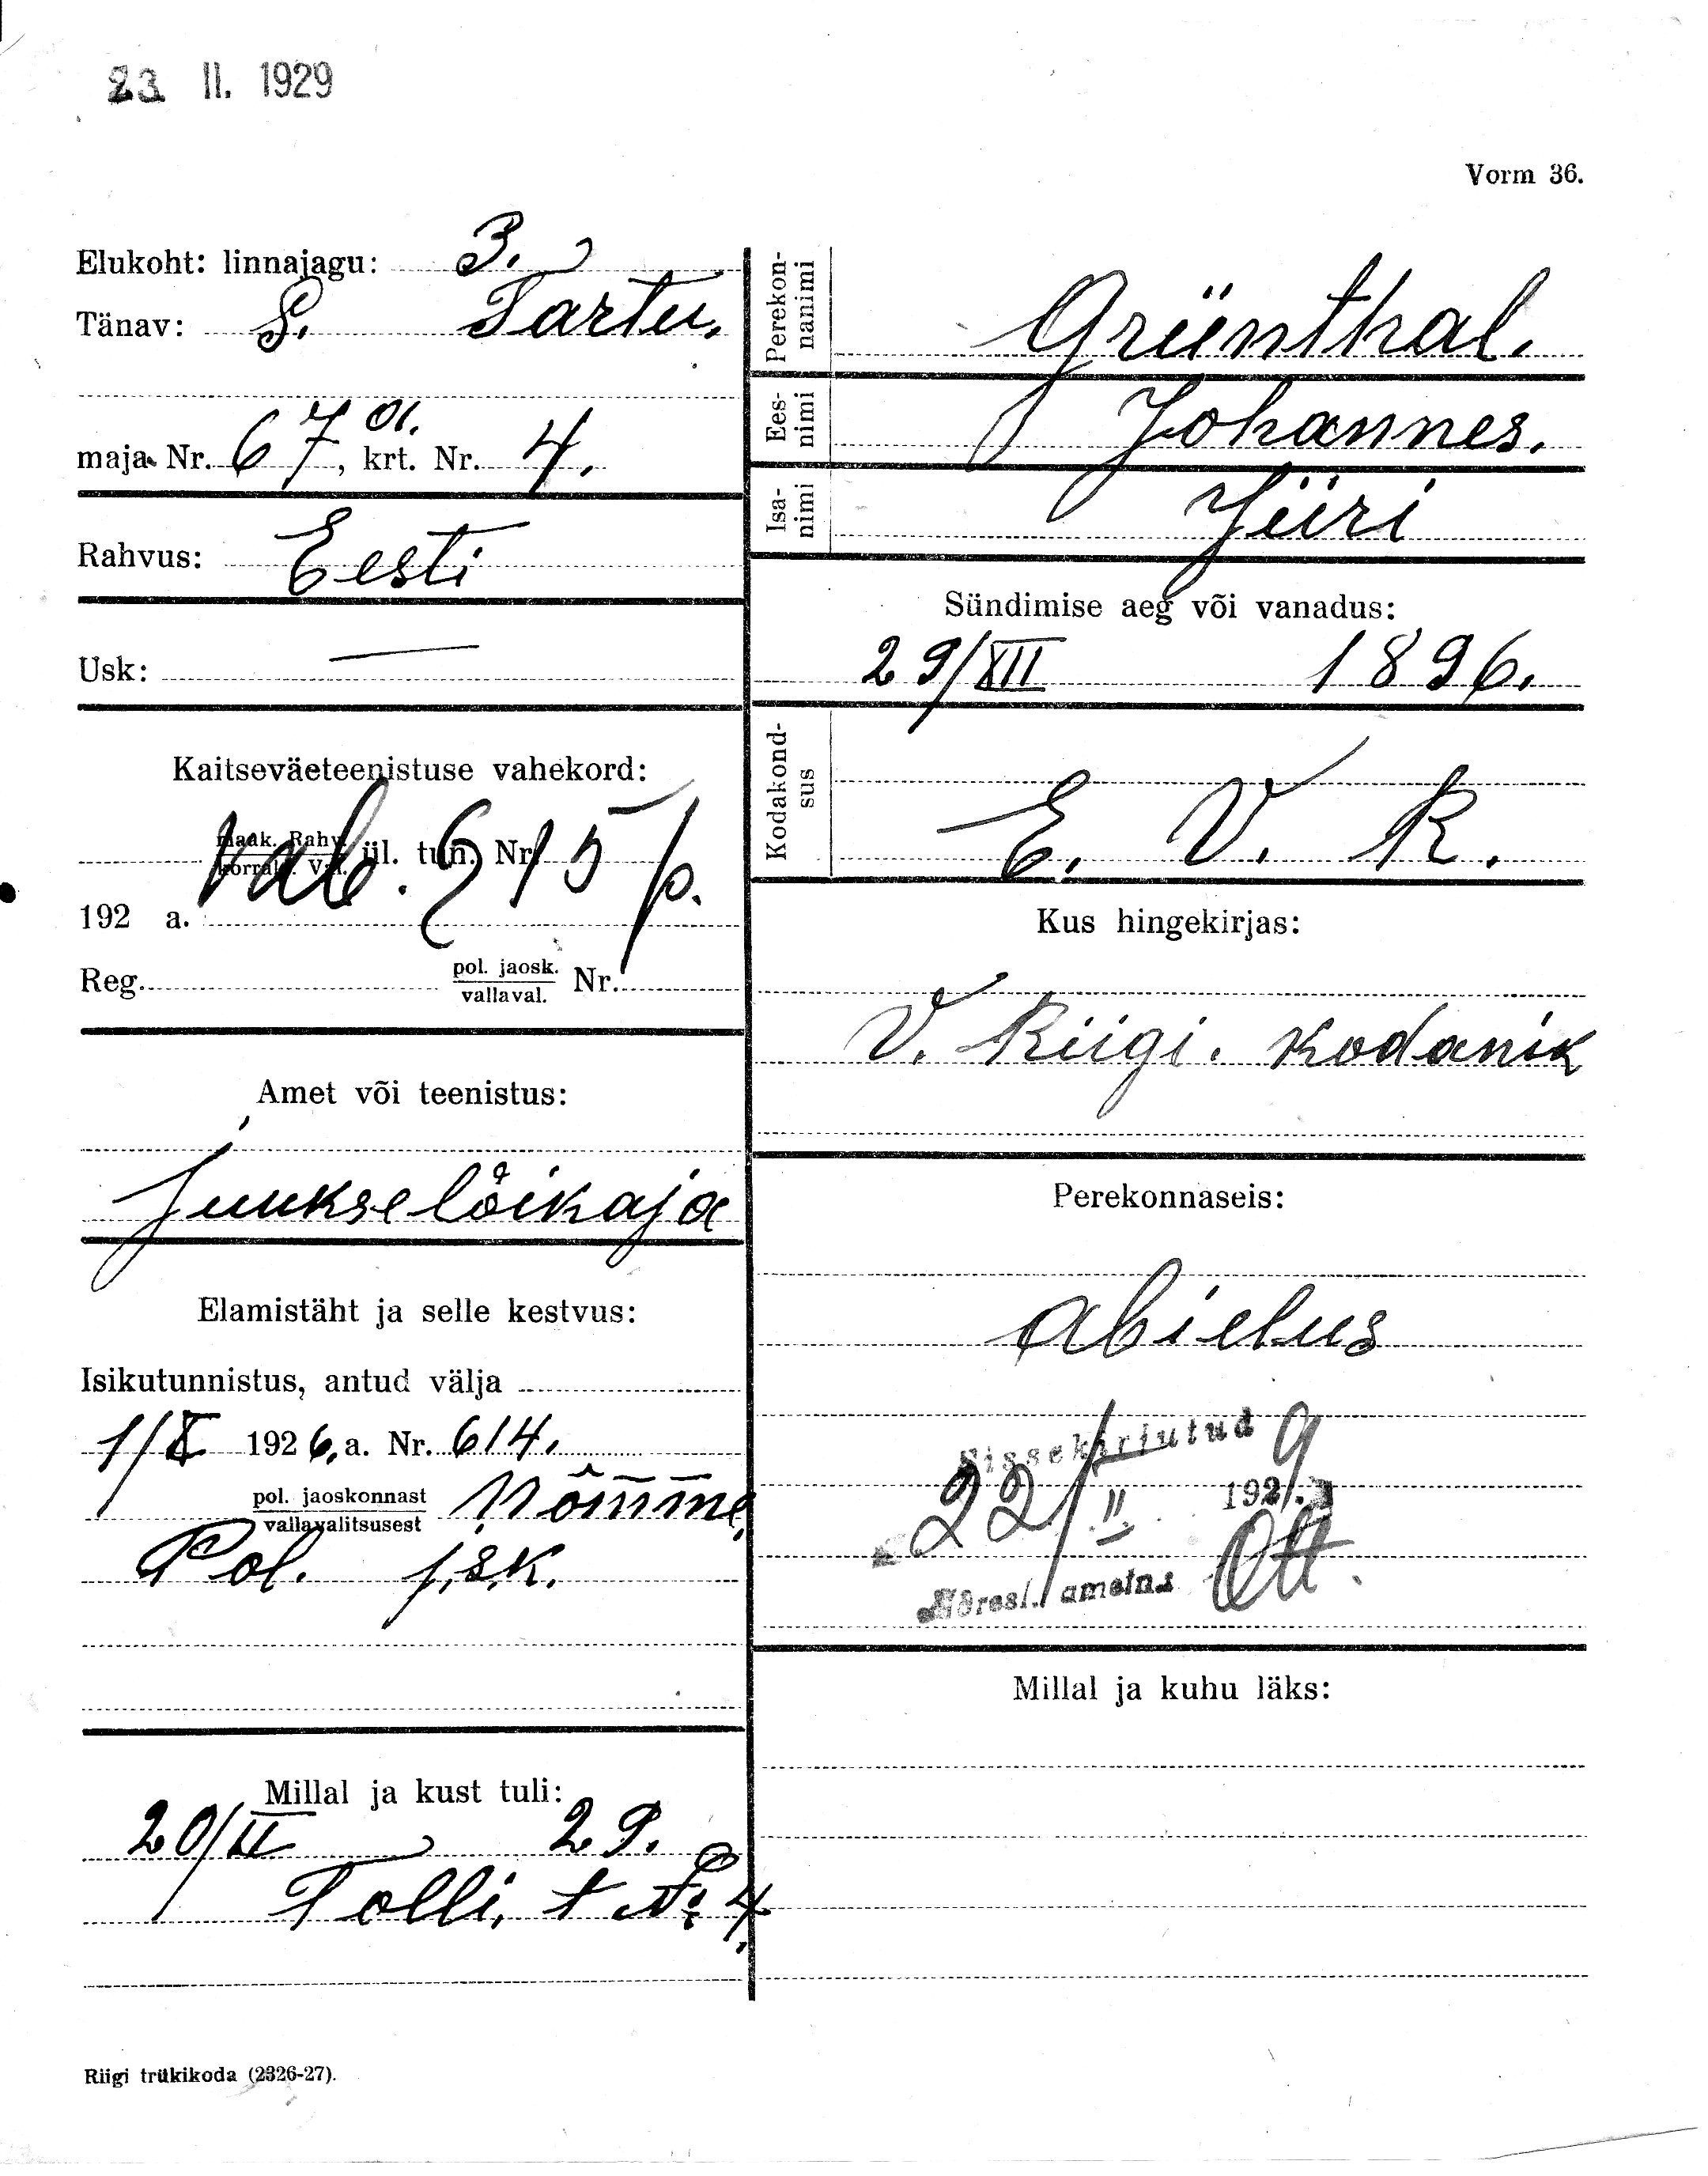 23 II. 1929
Vorm 36.
Elukoht: linnajagu: 3.
Tänav: S. Tartu.
maja Nr. 67 a., krt. Nr. 4.
Rahvus: Eesti
Usk: —
Kaitseväeteenistuse vahekord:
maak. Rahv.
korral. Val. ül. tun. Nr.
Vab. § 15 p.
192 a.
Reg. pol. jaosk. Nr.
vallaval.
Amet või teenistus:
Juukselõikaja
Elamistäht ja selle kestvus:
Isikutunnistus, antud välja
1/X 1926. a. Nr. 614.
pol. jaoskonnast
vallavalitsusest Nõmme,
Pol. jsk.
Millal ja kust tuli:
20/II 29.
Tolli, t № 4.
Riigi trükikoda (2326-27).
Perekonnanimi Grünthal.
Eesnimi Johannes.
Isanimi Jüri
Sündimise aeg või vanadus:
29/XII 1896.
Kodakondsus
E. V. K.
Kus hingekirjas:
V. Riigi. kodanik
Perekonnaseis:
abielus
Sissekirjutud
22/II 1929.
ametn. Ott.
Millal ja kuhu läks: